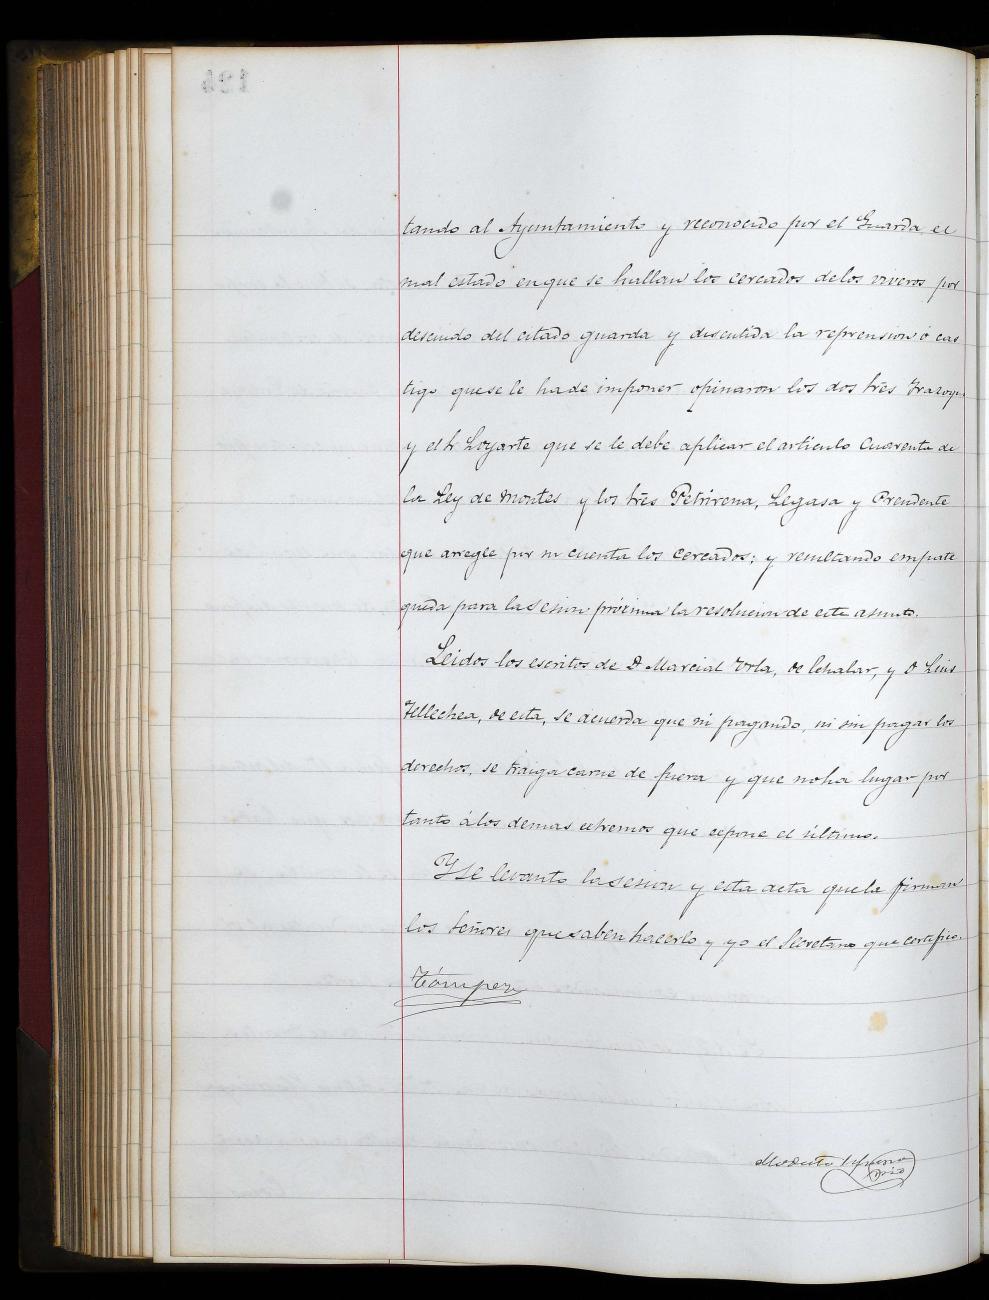 tando al Ayuntamiento y reconocido por el Guarda el
mal estado en que se hallan los cercados de los viveros por
descuido del citado guarda y discutida la reprension ó cas
tigo que se le ha de imponer opinaron los dos Sres
y el Sr Loyarte que se le debe aplicar el artículo cuarenta de
la Ley de Montes y los Sres Petrirena, Legasa y Presidente
que arregle por su cuenta los cercados; y resultando empate
queda para la sesion próxima la resolucion de este asunto.
Leidos los escritos de D Marcial Yrla, de Lehalar, y D Luis
Tellechea, de esta, se acuerda que ni pagando, ni sin pagar los
derechos, se traiga carne de fuera y que no ha lugar por
tanto á los demas estremos que espone el último.
Y se levanto la sesion y esta acta que la firman
los Señores que saben hacerlo y yo el Secretario que certifico.
Modesto